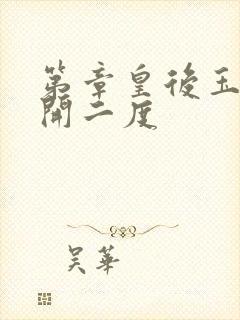 第章皇後玉
開二度
吴華